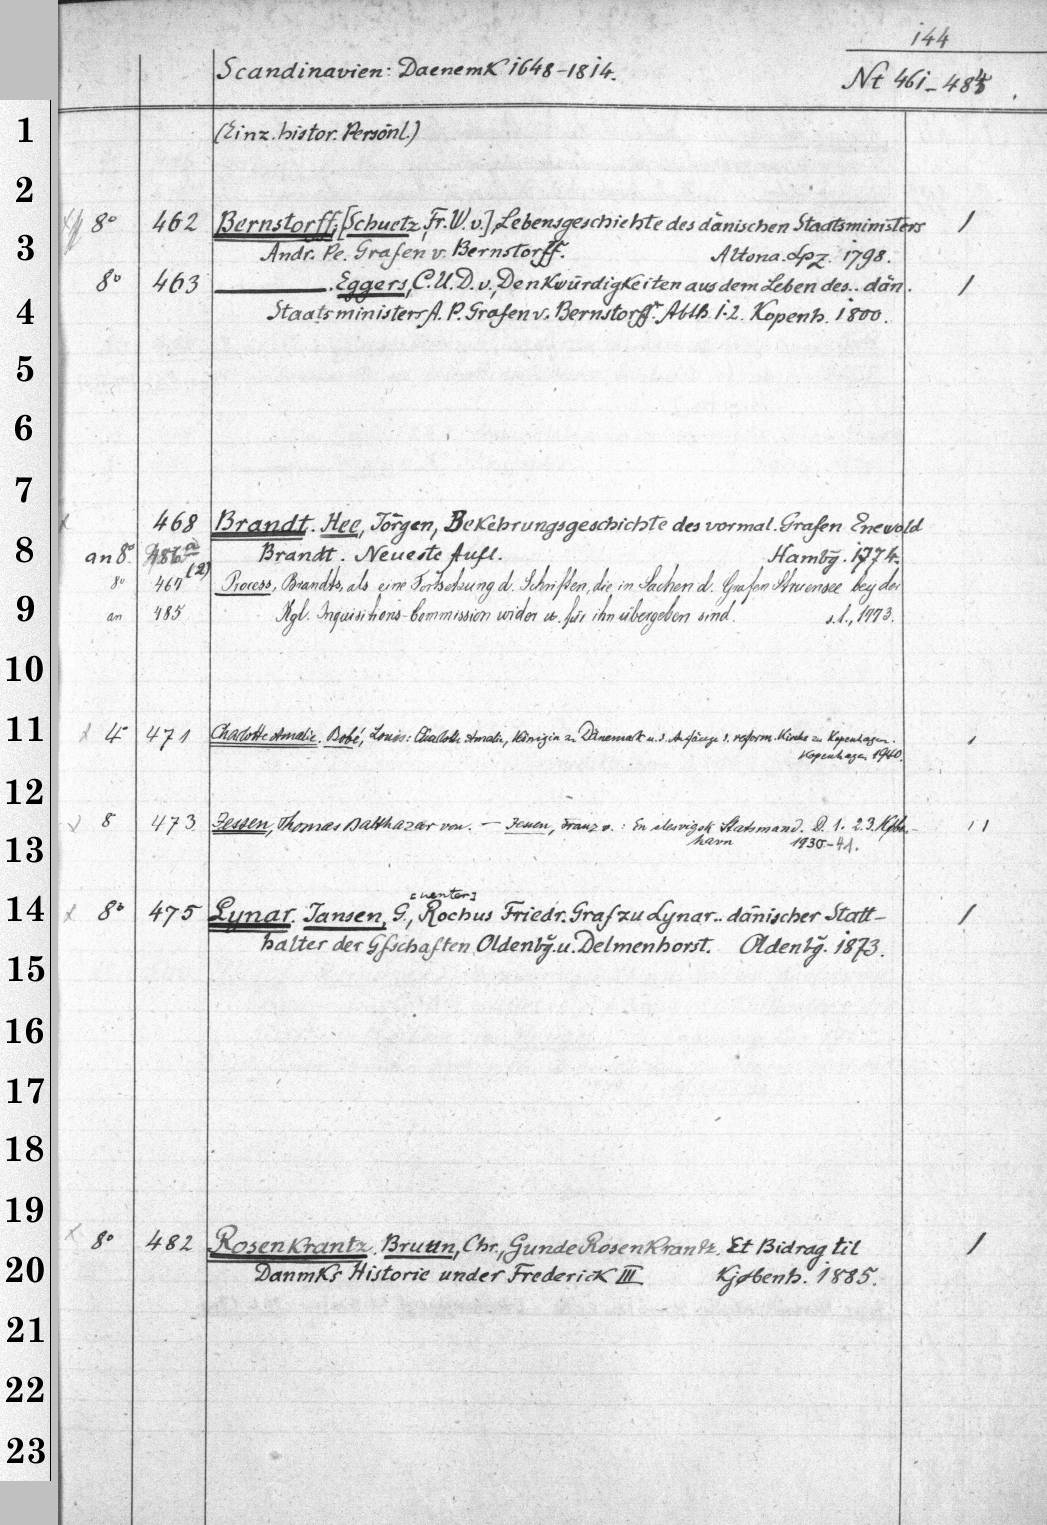 144
Scandinavien: Daenemk 1648-1814.
Nt 461-484
1
(Einz. histor. Persönl.)
2
8° 462 Bernstorff, [Schuetz, Fr. W. v.], Lebensgeschichte des dänischen Staatsministers /
3
Andr. Pe. Grafen v. Bernstorff. Altona. Lpz. 1798.
8° 463 ———. Eggers, C. U. D. v., Denkwürdigkeiten aus dem Leben des.. dän. /
4
Staatsministers A. P. Grafen v. Bernstorff. Abth. 1-2. Kopenh. 1800.
5
6
7
x 468 Brandt. Hee, Jörgen, Bekehrungsgeschichte des vormal. Grafen Enewold
8
an 8° 486a (2) Brandt. Neueste Aufl. Hambg. 1774.
8° 469 Process, Brandts, als eine Fortsetzung d. Schriften, die in Sachen d. Grafen Struensee bey der
9
an 485 Kgl. Inquisitions-Commission wider u. für ihn übergeben sind. s.l., 1773.
10
11
x 4° 471 Charlotte Amalie. Bobé, Louis: Charlotte Amalie, Königin zu Dänemark u. d. Anfänge d. reform. Kirche zu Kopenhagen. /
Kopenhagen 1940.
12
x 8 473 Jessen, Thomas Balthazar von. — Jessen, Franz v.: En slesvigsk Statsmand. D. 1. 2. 3. Kjbn- / /
13
havn 1930-41.
14
x 8° 475 Lynar. Jansen, G., Rochus [uenter] Friedr. Graf zu Lynar.. dänischer Statt- /
15
halter der Gfschaften Oldenbg. u. Delmenhorst. Oldenbg. 1873.
16
17
18
19
x 8° 482 Rosenkrantz. Bruun, Chr., Gunde Rosenkrantz. Et Bidrag til /
20
Danmks Historie under Frederick III Kjøbenh. 1885.
21
22
23